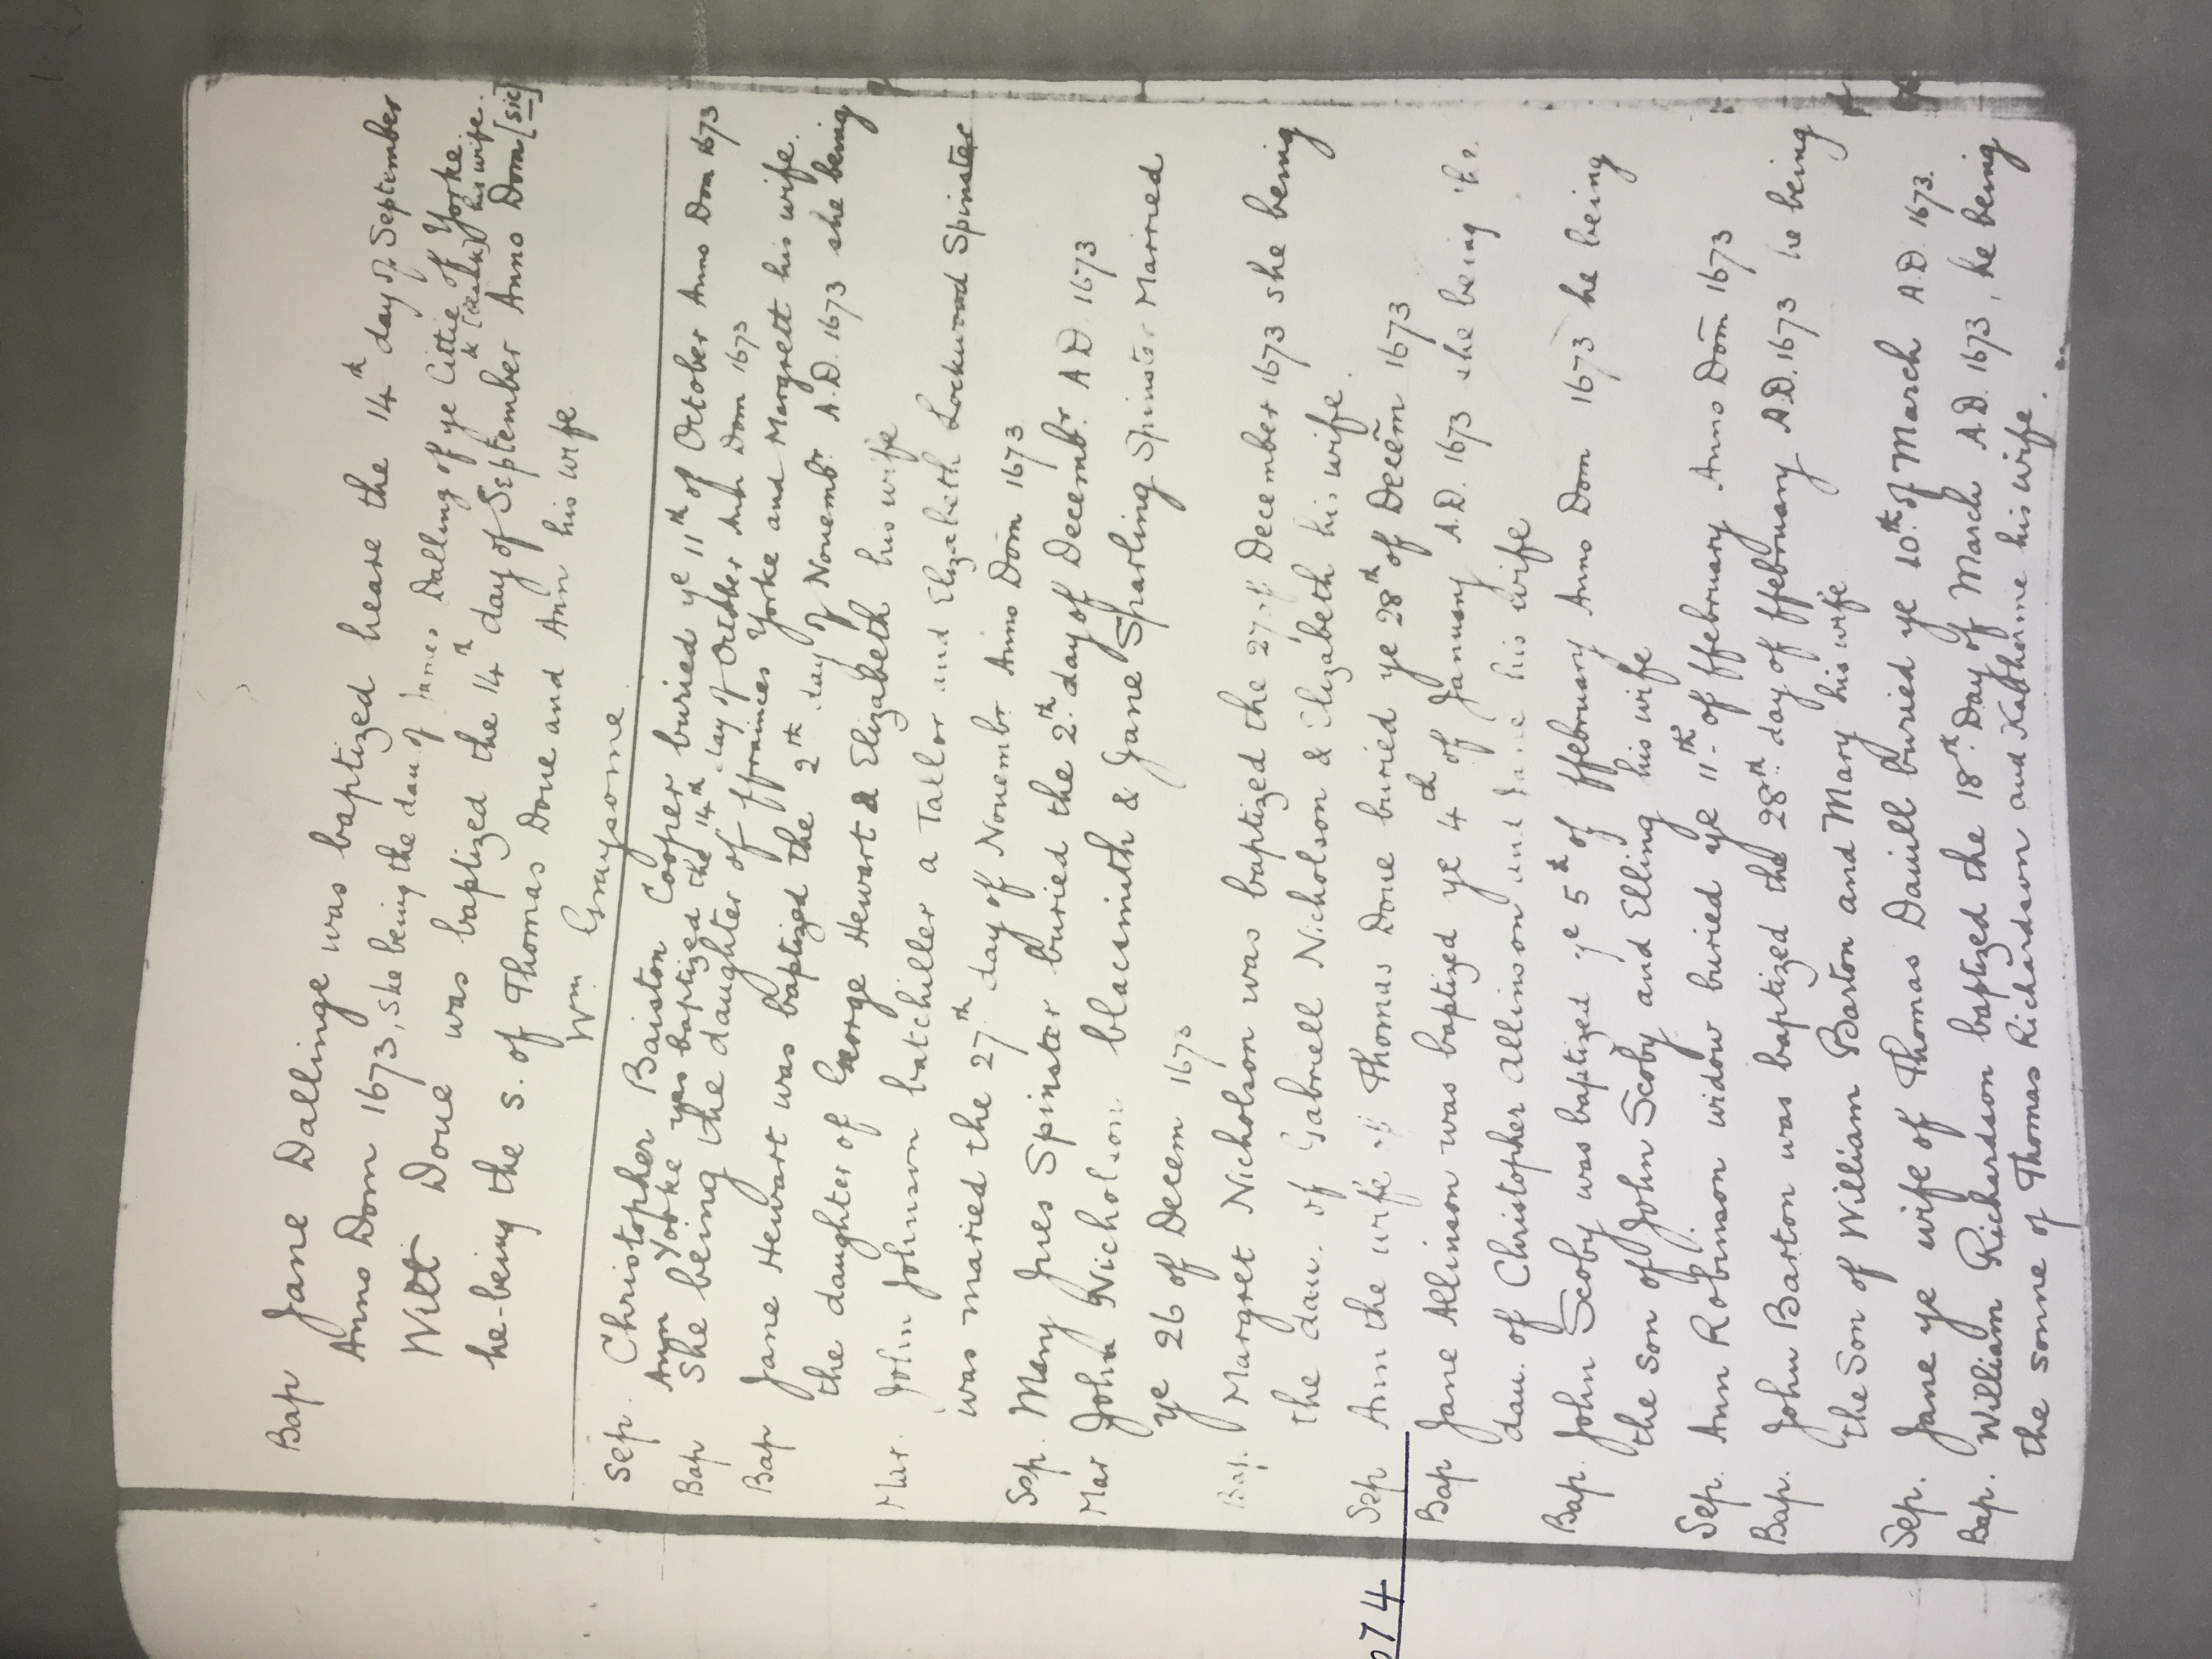 Bap Jane Dallinge was baptized heare the 14th day of September
Anno Dom 1673, she being the dau of James Dalling of ye Cittie of Yorke
& his wife.
Will Doue was baptized the 14th day of September Anno Dom [sic]
he being the s. of Thomas Doue and Ann his wife
Wm. Graysone
Sep. Christopher Baiston Cooper buried ye 11th of October Anno Dom 1673
Bap Ann Yorke was baptized the 14th day of October Ano Dom 1673
She being the daughter of ffrainces Yorke and Margrett his wife.
Bap Jane Hewart was baptized the 2th day of Nouembr. A.D. 1673 she being
the daughter of George Hewart & Elizabeth his wife
Mar. John Johnson batchiller a Tallor and Elizabeth Lockwood Spinster
was maried the 27th day of Nouembr Anno Dom 1673
Sep. Mary Jues Spinster buried the 2th day of Decembr. A.D. 1673
Mar John Nicholson blacsmith & Jane Sparling Spinster Married
ye 26 of Decem 1673
Bap. Margret Nicholson was baptized the 27 of December 1673 she being
the dau. of Gabriell Nicholson & Elizabeth his wife.
Sep Ann the wife of Thomas Doue buried ye 28th of Decem 1673
1674
Bap Jane Allinson was baptized ye 4th of January A.D. 1673 she being the
dau. of Christopher Allinson and Jane his wife
Bap. John Scoby was baptized ye 5th of ffebruary Anno Dom 1673 he being
the son of John Scoby and Elling his wife
Sep. Ann Robinson widow buried ye 11th of ffebruary Anno Dom 1673
Bap. John Barton was baptized the 28th day of ffebruary A.D. 1673 he being
the Son of William Barton and Mary his wife
Sep. Jane ye wife of Thomas Dauill buried ye 10th of March A.D. 1673.
Bap. William Richardson baptized the 18th Day of March A.D. 1673, he being
the sonne of Thomas Richardson and Katherine his wife.